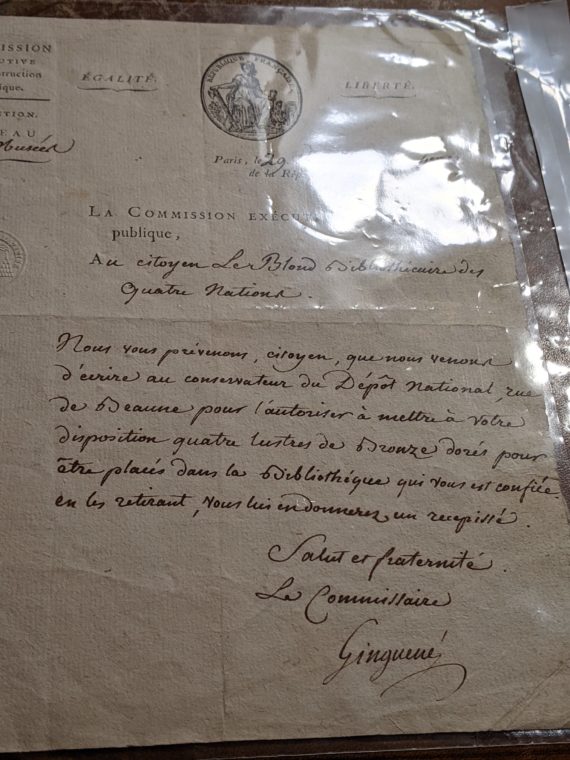 MISSION
UTIVE
truction
ique.
CTION.
EAU
Musées
ÉGALITÉ.
RÉPUBLIQUE FRANÇAISE
LIBERTÉ.
Paris, le 29
de la Rép
LA COMMISSION EXÉCUT
publique,
Au citoyen Le Blond Bibliothécaire des
Quatre Nations.
Nous vous prévenons, citoyen, que nous venons
d'écrire au conservateur du Dépôt National, rue
de Beaune pour l'autoriser à mettre à votre
disposition quatre lustres de Bronze dorés pour
être placés dans la Bibliothéque qui vous est confiée.
en les retirant, vous lui en donnerez un recepissé.
Salut et fraternité.
Le Commissaire
Ginguené